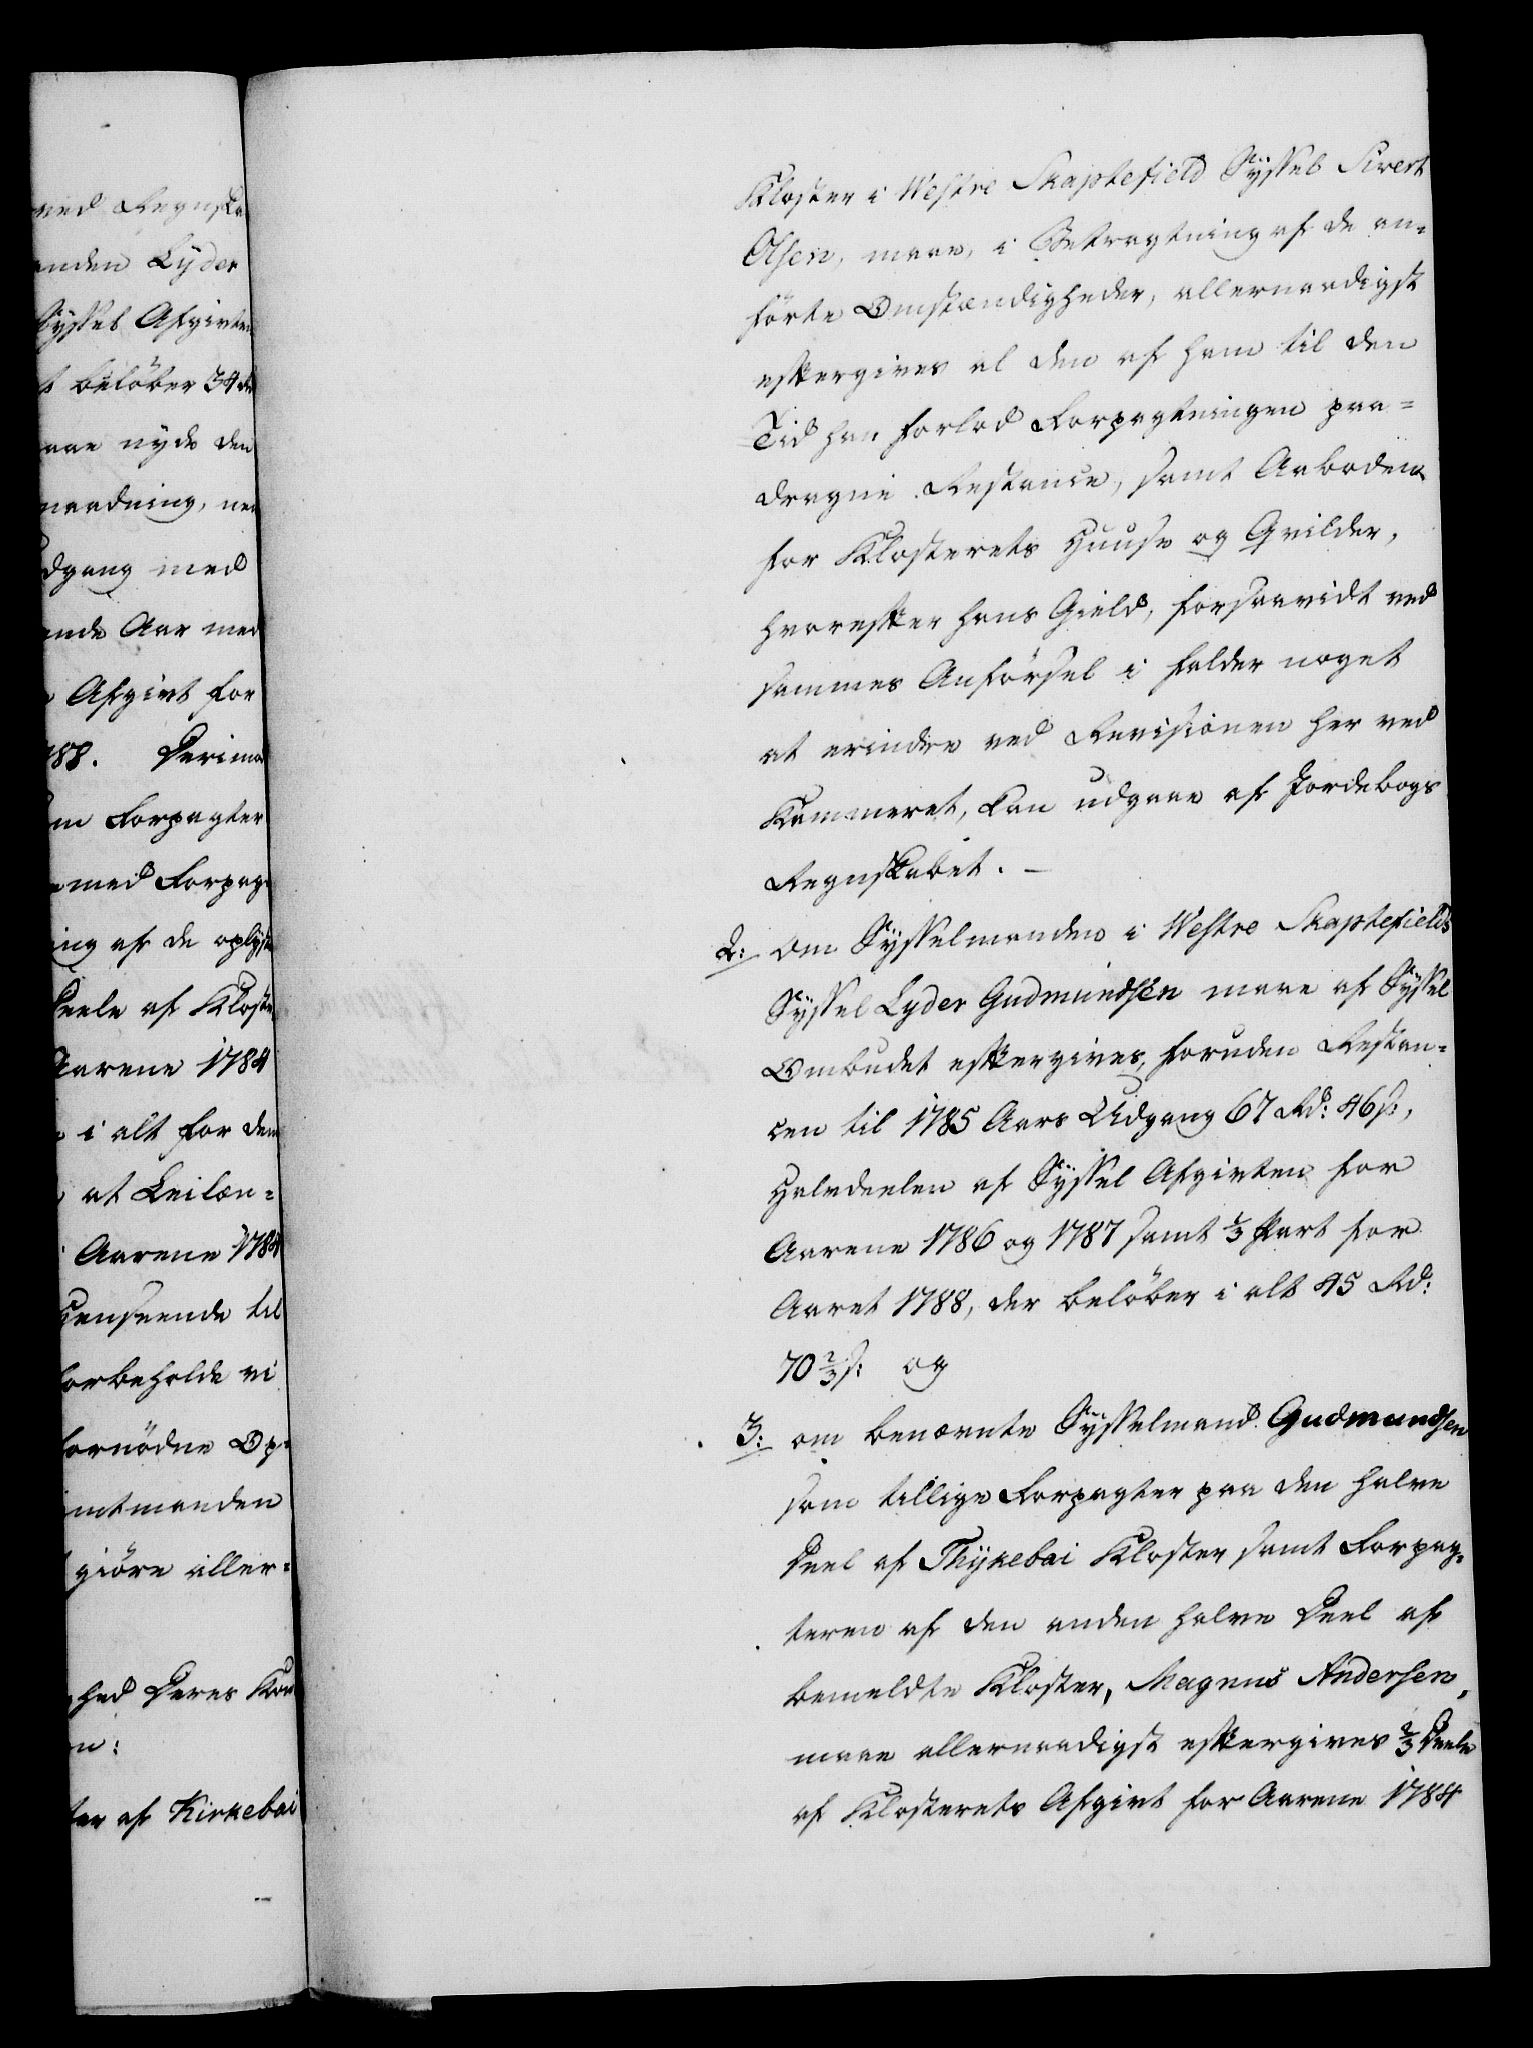 ved Regnska
anden Lyder
Syssel Afgivten
t beløber 34 rd
aae nyde den
naadning, ne
dgang med
ende Aar med
Afgivt for
788. Derimod
m Forpagter
med Forpag-
ing af de oplyste
Deele af Kloste
Aarene 1784
i alt for dem
at Leilæn-
Aarene 1784
Henseende til
forbeholde vi
fornødne Op-
mtmanden
giøre aller-
hed Deres Kon
n:
ter af Kirkebai
Kloster i Westre Skaptefield Syssel Sivert
Olsen, maae, i Betragtning af de an-
førte Omstændigheder, allernaadigst
eftergives al den af ham til den
Tid han forlod Forpagtningen paa-
dragne Restance, samt Aaboden
for Klosterets Huuse og Qvilder,
hvorefter hans Gield, forsaavidt ved
sammes Anførsel i falder noget
at erindre ved Revisionen her ved
Kammeret, kan udgaae af Jordebogs
Regnskabet. -
2: Om Sysselmanden i Westre Skaptefields
Syssel Lyder Gudmundsen maae af Syssel
Ombudet eftergives, foruden Restan-
cen til 1785 Aars Udgang 67 Rd: 46 s:,
Halvdeelen af Syssel Afgivten for
Aarene 1786 og 1787 samt 1/3 Part for
Aaret 1788, der beløber i alt 45 Rd:
70 2/3 s: og
3: om benævnte Sysselmand Gudmundsen
som tillige Forpagter paa den halve
Deel af Thykebai Kloster samt Forpag-
teren af den anden halve Deel af
bemeldte Kloster, Magnus Andersen,
maae allernaadigst eftergives 2/3 Deele
af Klosterets Afgivt for Aarene 1784